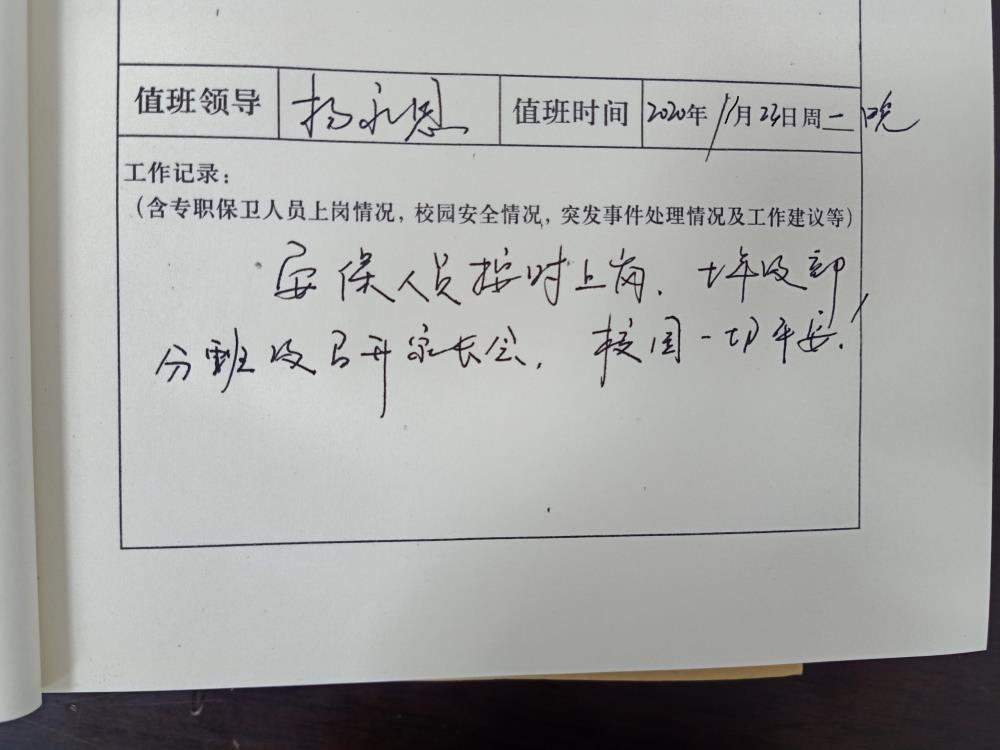 值班领导 杨永恩 值班时间 2020年11月23日周一晚
工作记录:
(含专职保卫人员上岗情况,校园安全情况,突发事件处理情况及工作建议等)
安保人员按时上岗、七年级部
分班级召开家长会,校园一切平安!